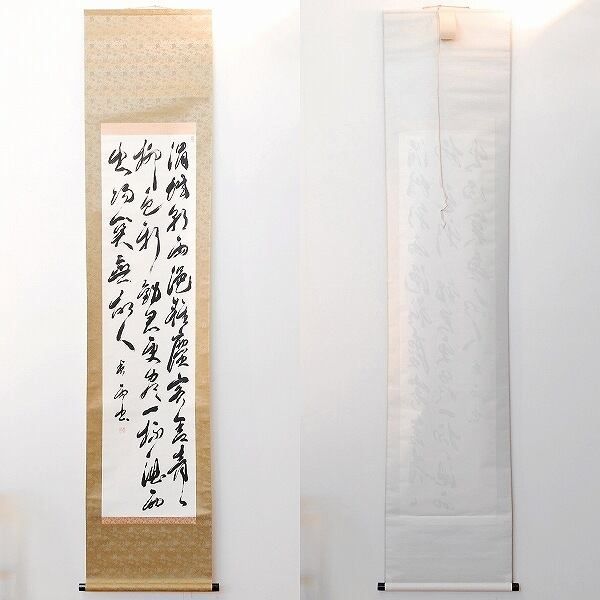 渭城朝雨浥輕塵客舍青々
柳色新勸君更盡一杯酒西
出陽關無故人
書